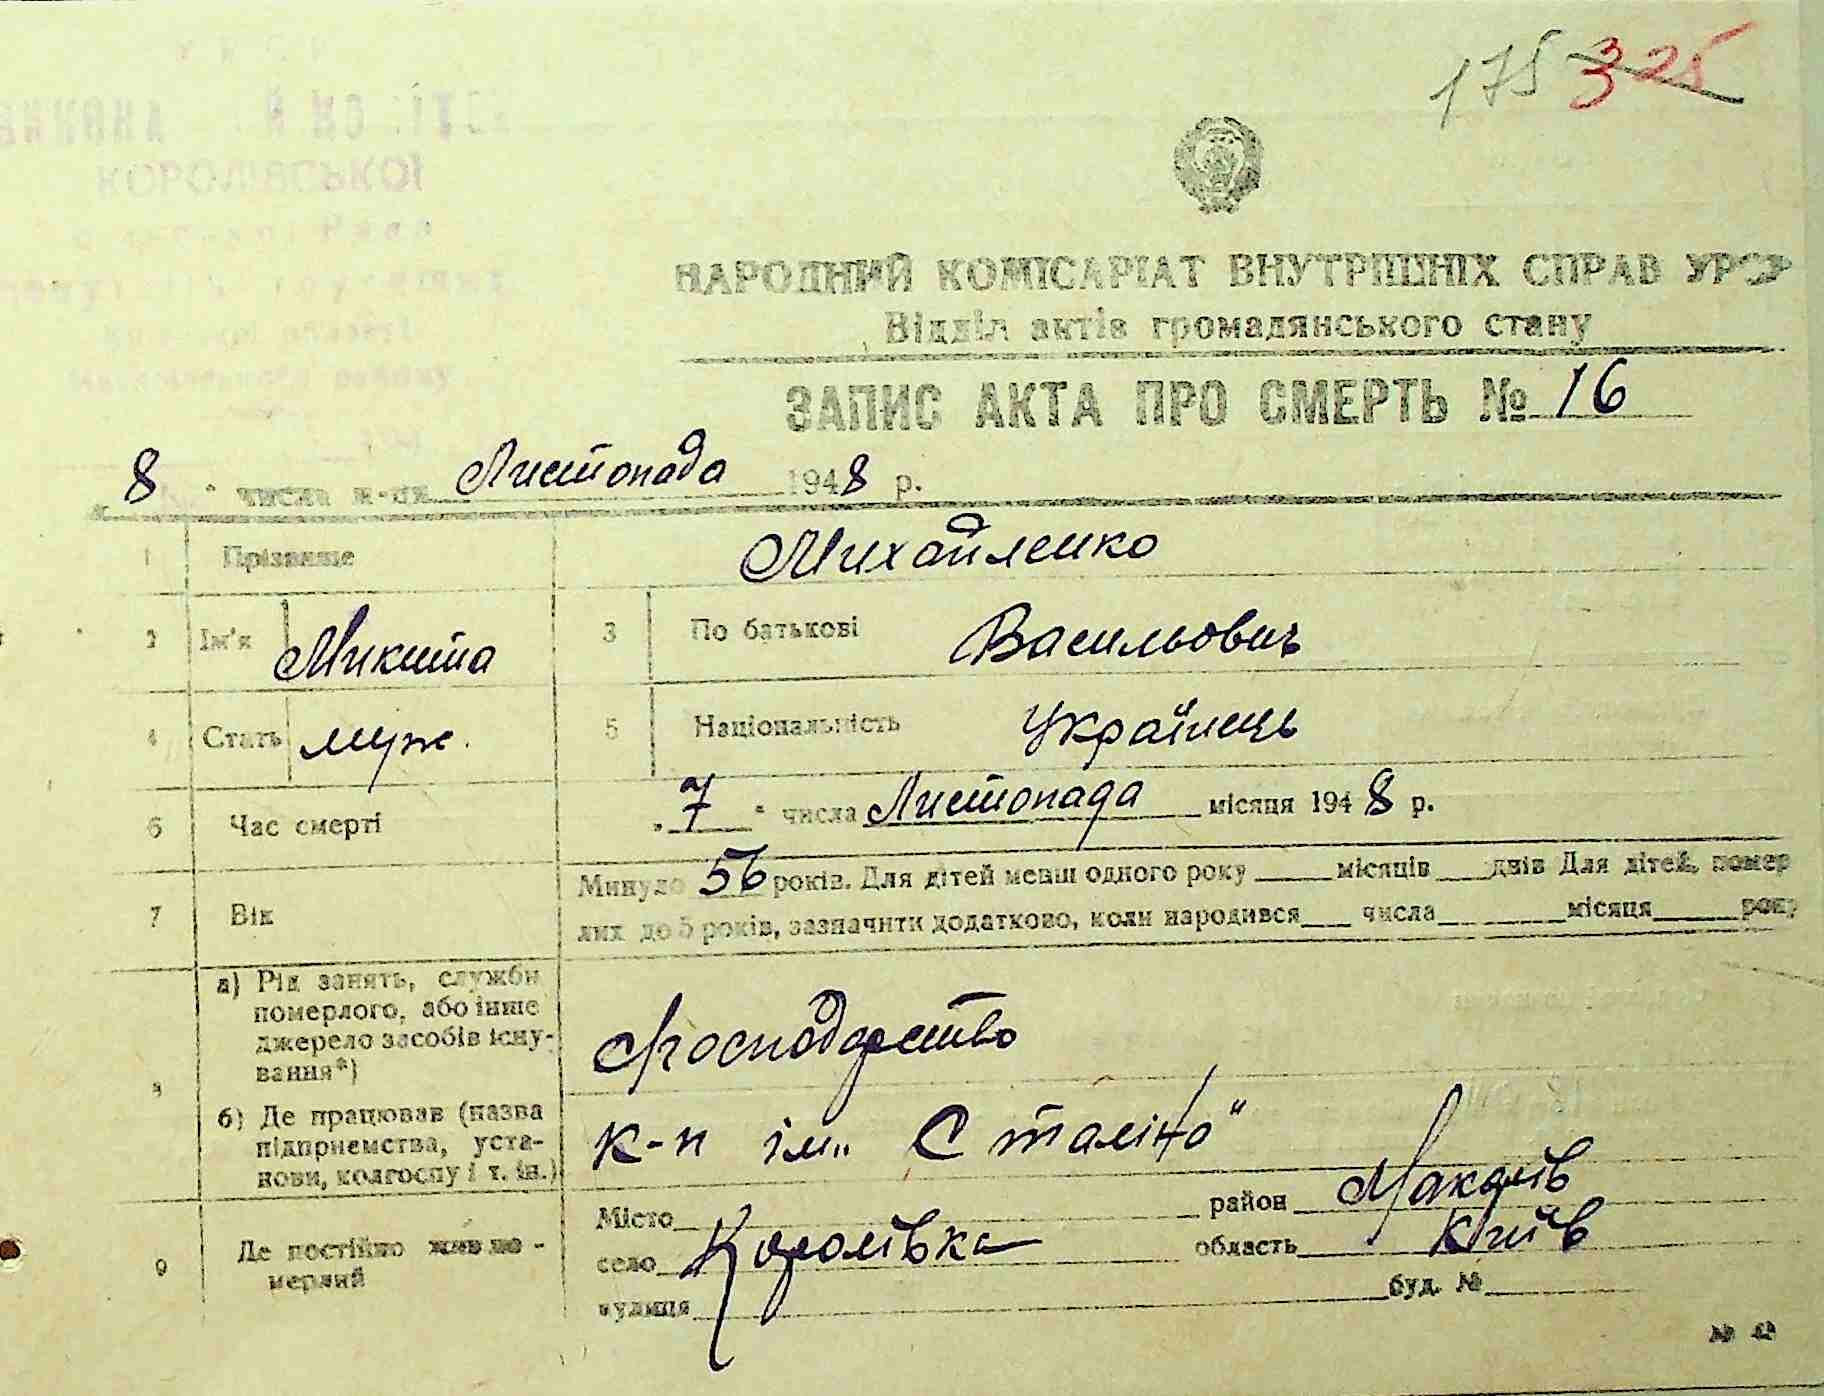 175 325
КОРОЛІВСЬКОЇ
НАРОДНИЙ КОМІСАРІАТ ВНУТРІШНІХ СПРАВ УРСР
Відділ актів громадянського стану
ЗАПИС АКТА ПРО СМЕРТЬ № 16
8 " числа м-ця Листопада 1948 р.
1 Прізвище Михайленко
2 Ім'я Микита 3 По батькові Васильович
4 Стать муж. 5 Національність Українець
6 Час смерті „ 7 " числа Листопада місяця 1948 р.
7 Вік Минуло 56 років. Для дітей менш одного року місяців днів Для дітей, помер
лих до 5 років, зазначити додатково, коли народився числа місяця року
8 а) Рід занять, служби
померлого, або інше
джерело засобів існу-
вання*)
господарство
б) Де працював (назва
підприємства, уста-
нови, колгоспу і т. ін.)
к-п ім „ Сталіна"
9 Де постійно жив по-
мерлий
Місто район Макарів
село Королівка область Київ
вулиця буд. №